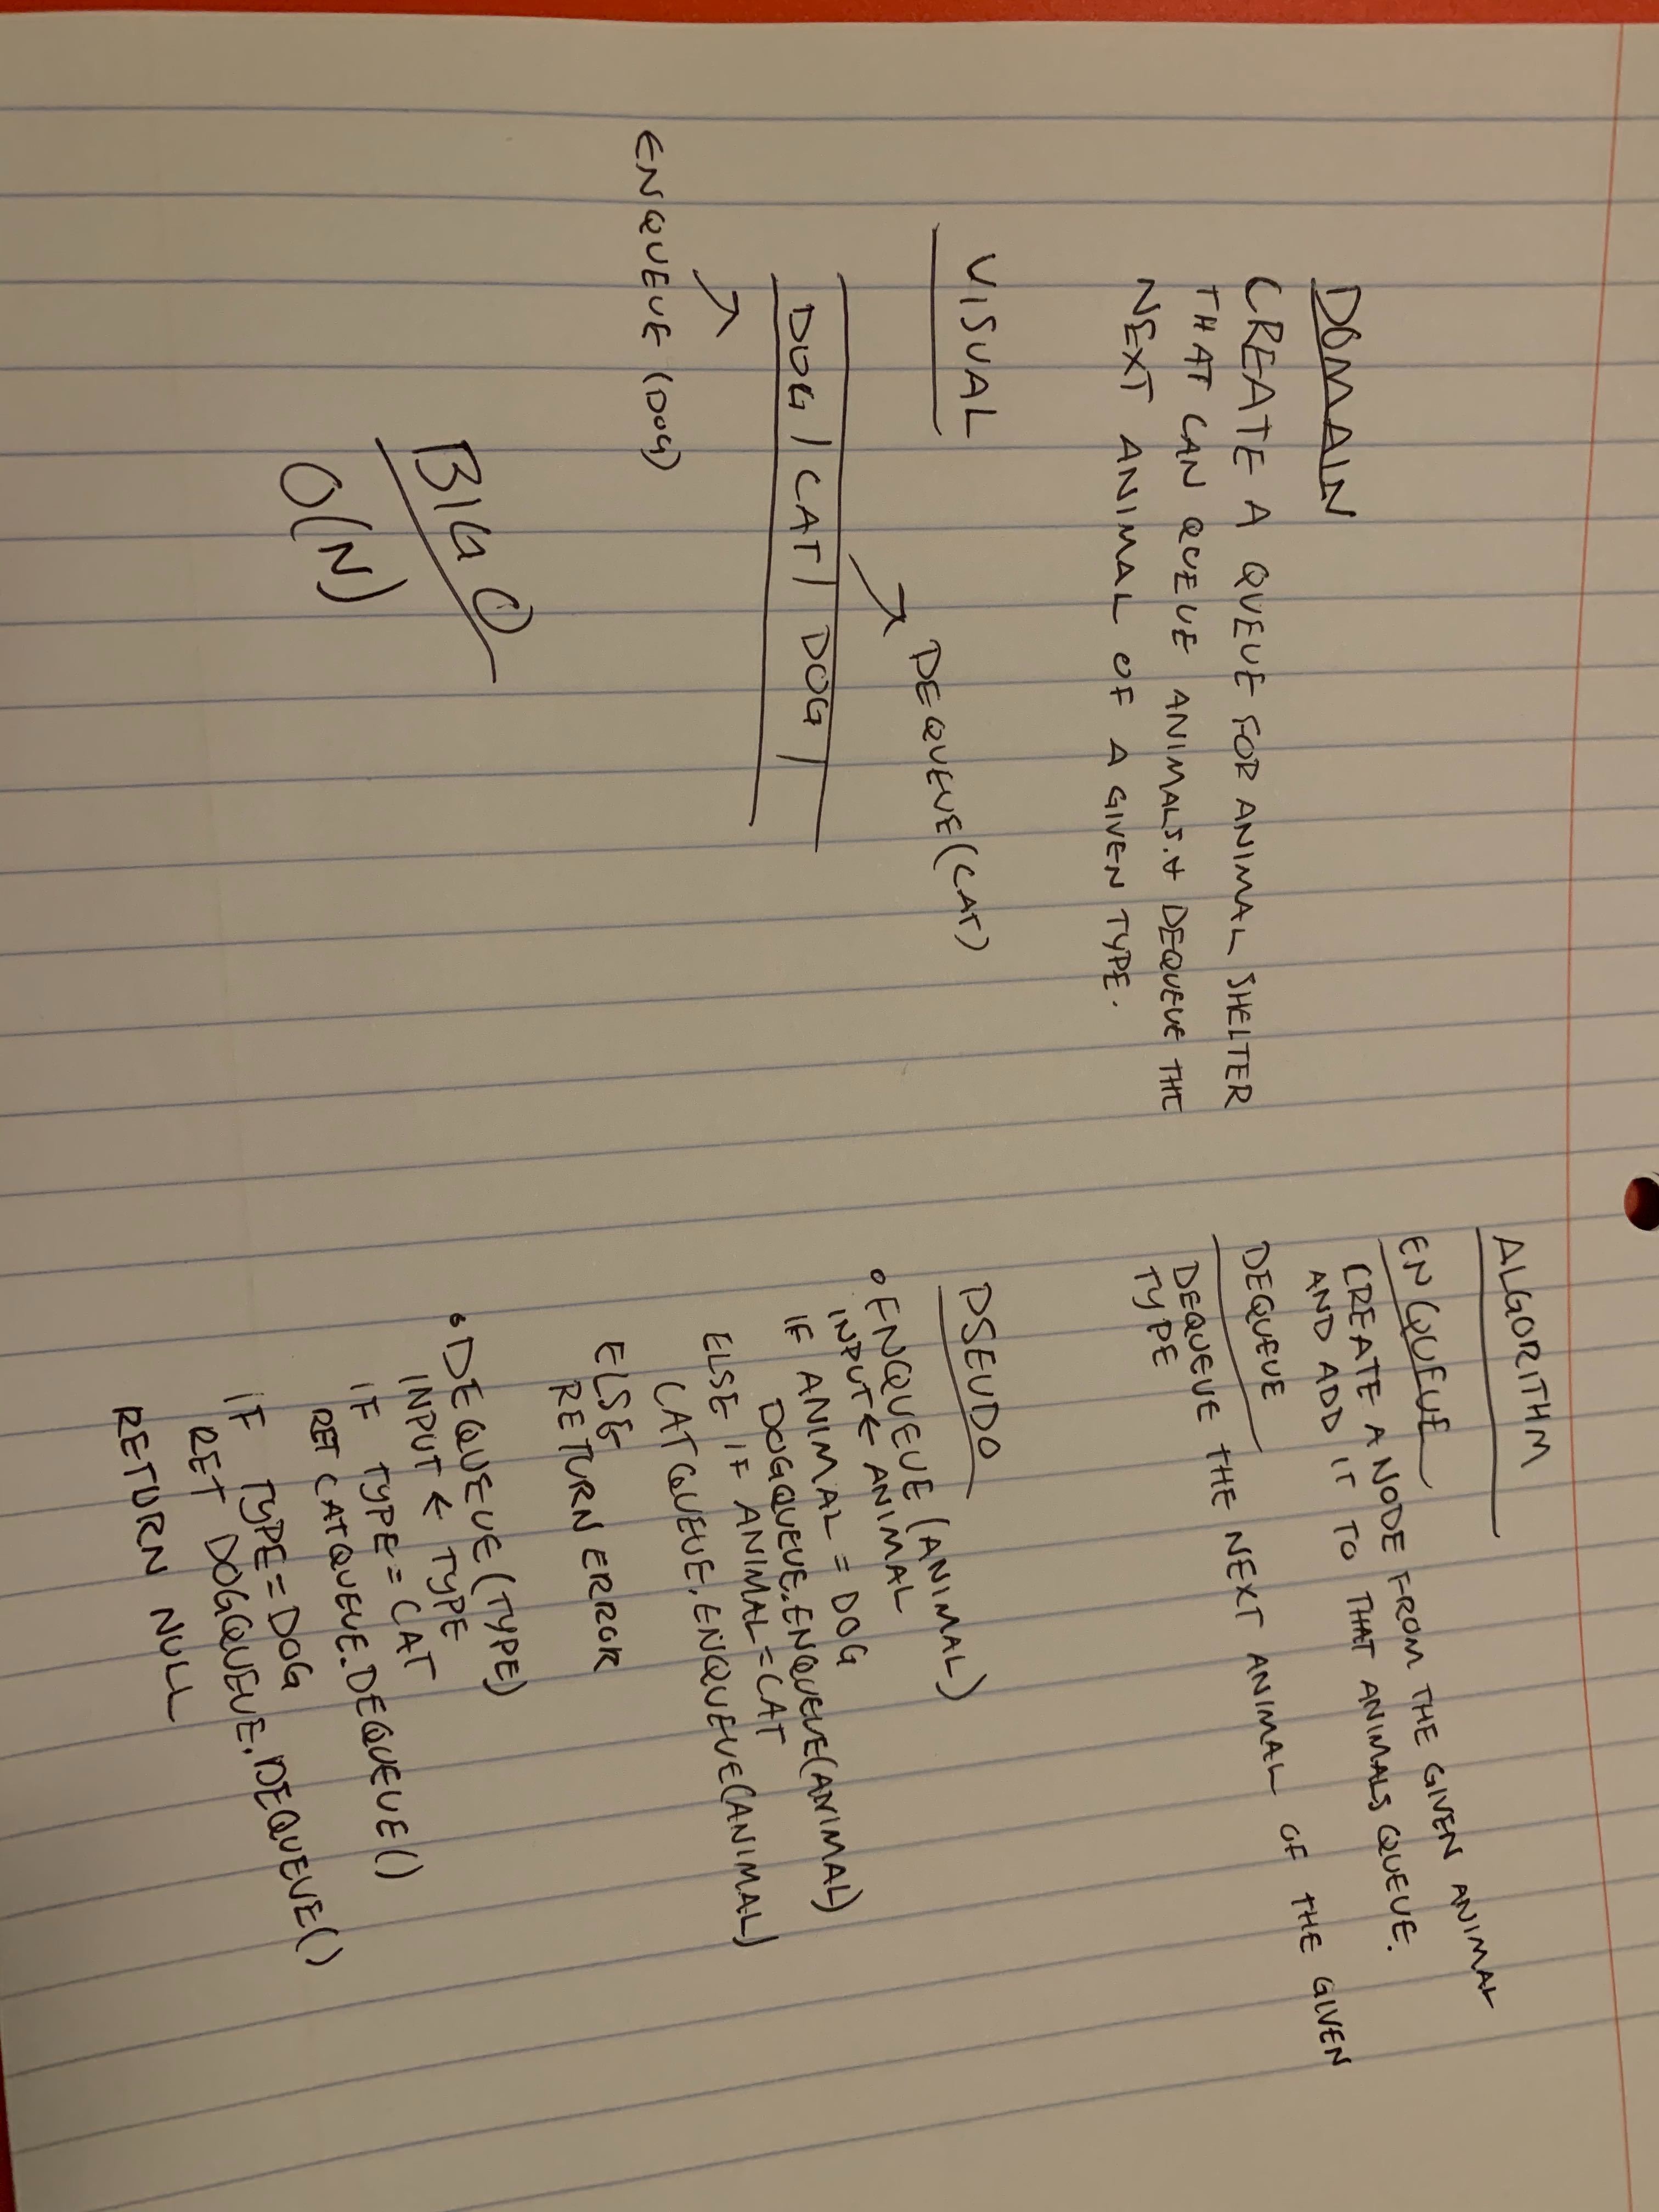 DOMAIN
CREATE A QUEUE FOR ANIMAL SHELTER
THAT CAN QUEUE ANIMALS. + DEQUEUE THE
NEXT ANIMAL OF A GIVEN TYPE.
VISUAL
DEQUEUE(CAT)
DOG | CAT | DOG |
ENQUEUE (DOG)
BIG O
O(N)
ALGORITHM
ENQUEUE
CREATE A NODE FROM THE GIVEN ANIMAL
AND ADD IT TO THAT ANIMALS QUEUE.
DEQUEUE
DEQUEUE THE NEXT ANIMAL OF THE GIVEN
TYPE
PSEUDO
• ENQUEUE (ANIMAL)
INPUT ← ANIMAL
IF ANIMAL = DOG
DOGQUEUE.ENQUEUE(ANIMAL)
ELSE IF ANIMAL = CAT
CATQUEUE.ENQUEUE(ANIMAL)
ELSE
RETURN ERROR
• DEQUEUE (TYPE)
INPUT ← TYPE
IF TYPE = CAT
RET CATQUEUE.DEQUEUE()
IF TYPE = DOG
RET DOGQUEUE.DEQUEUE()
RETURN NULL